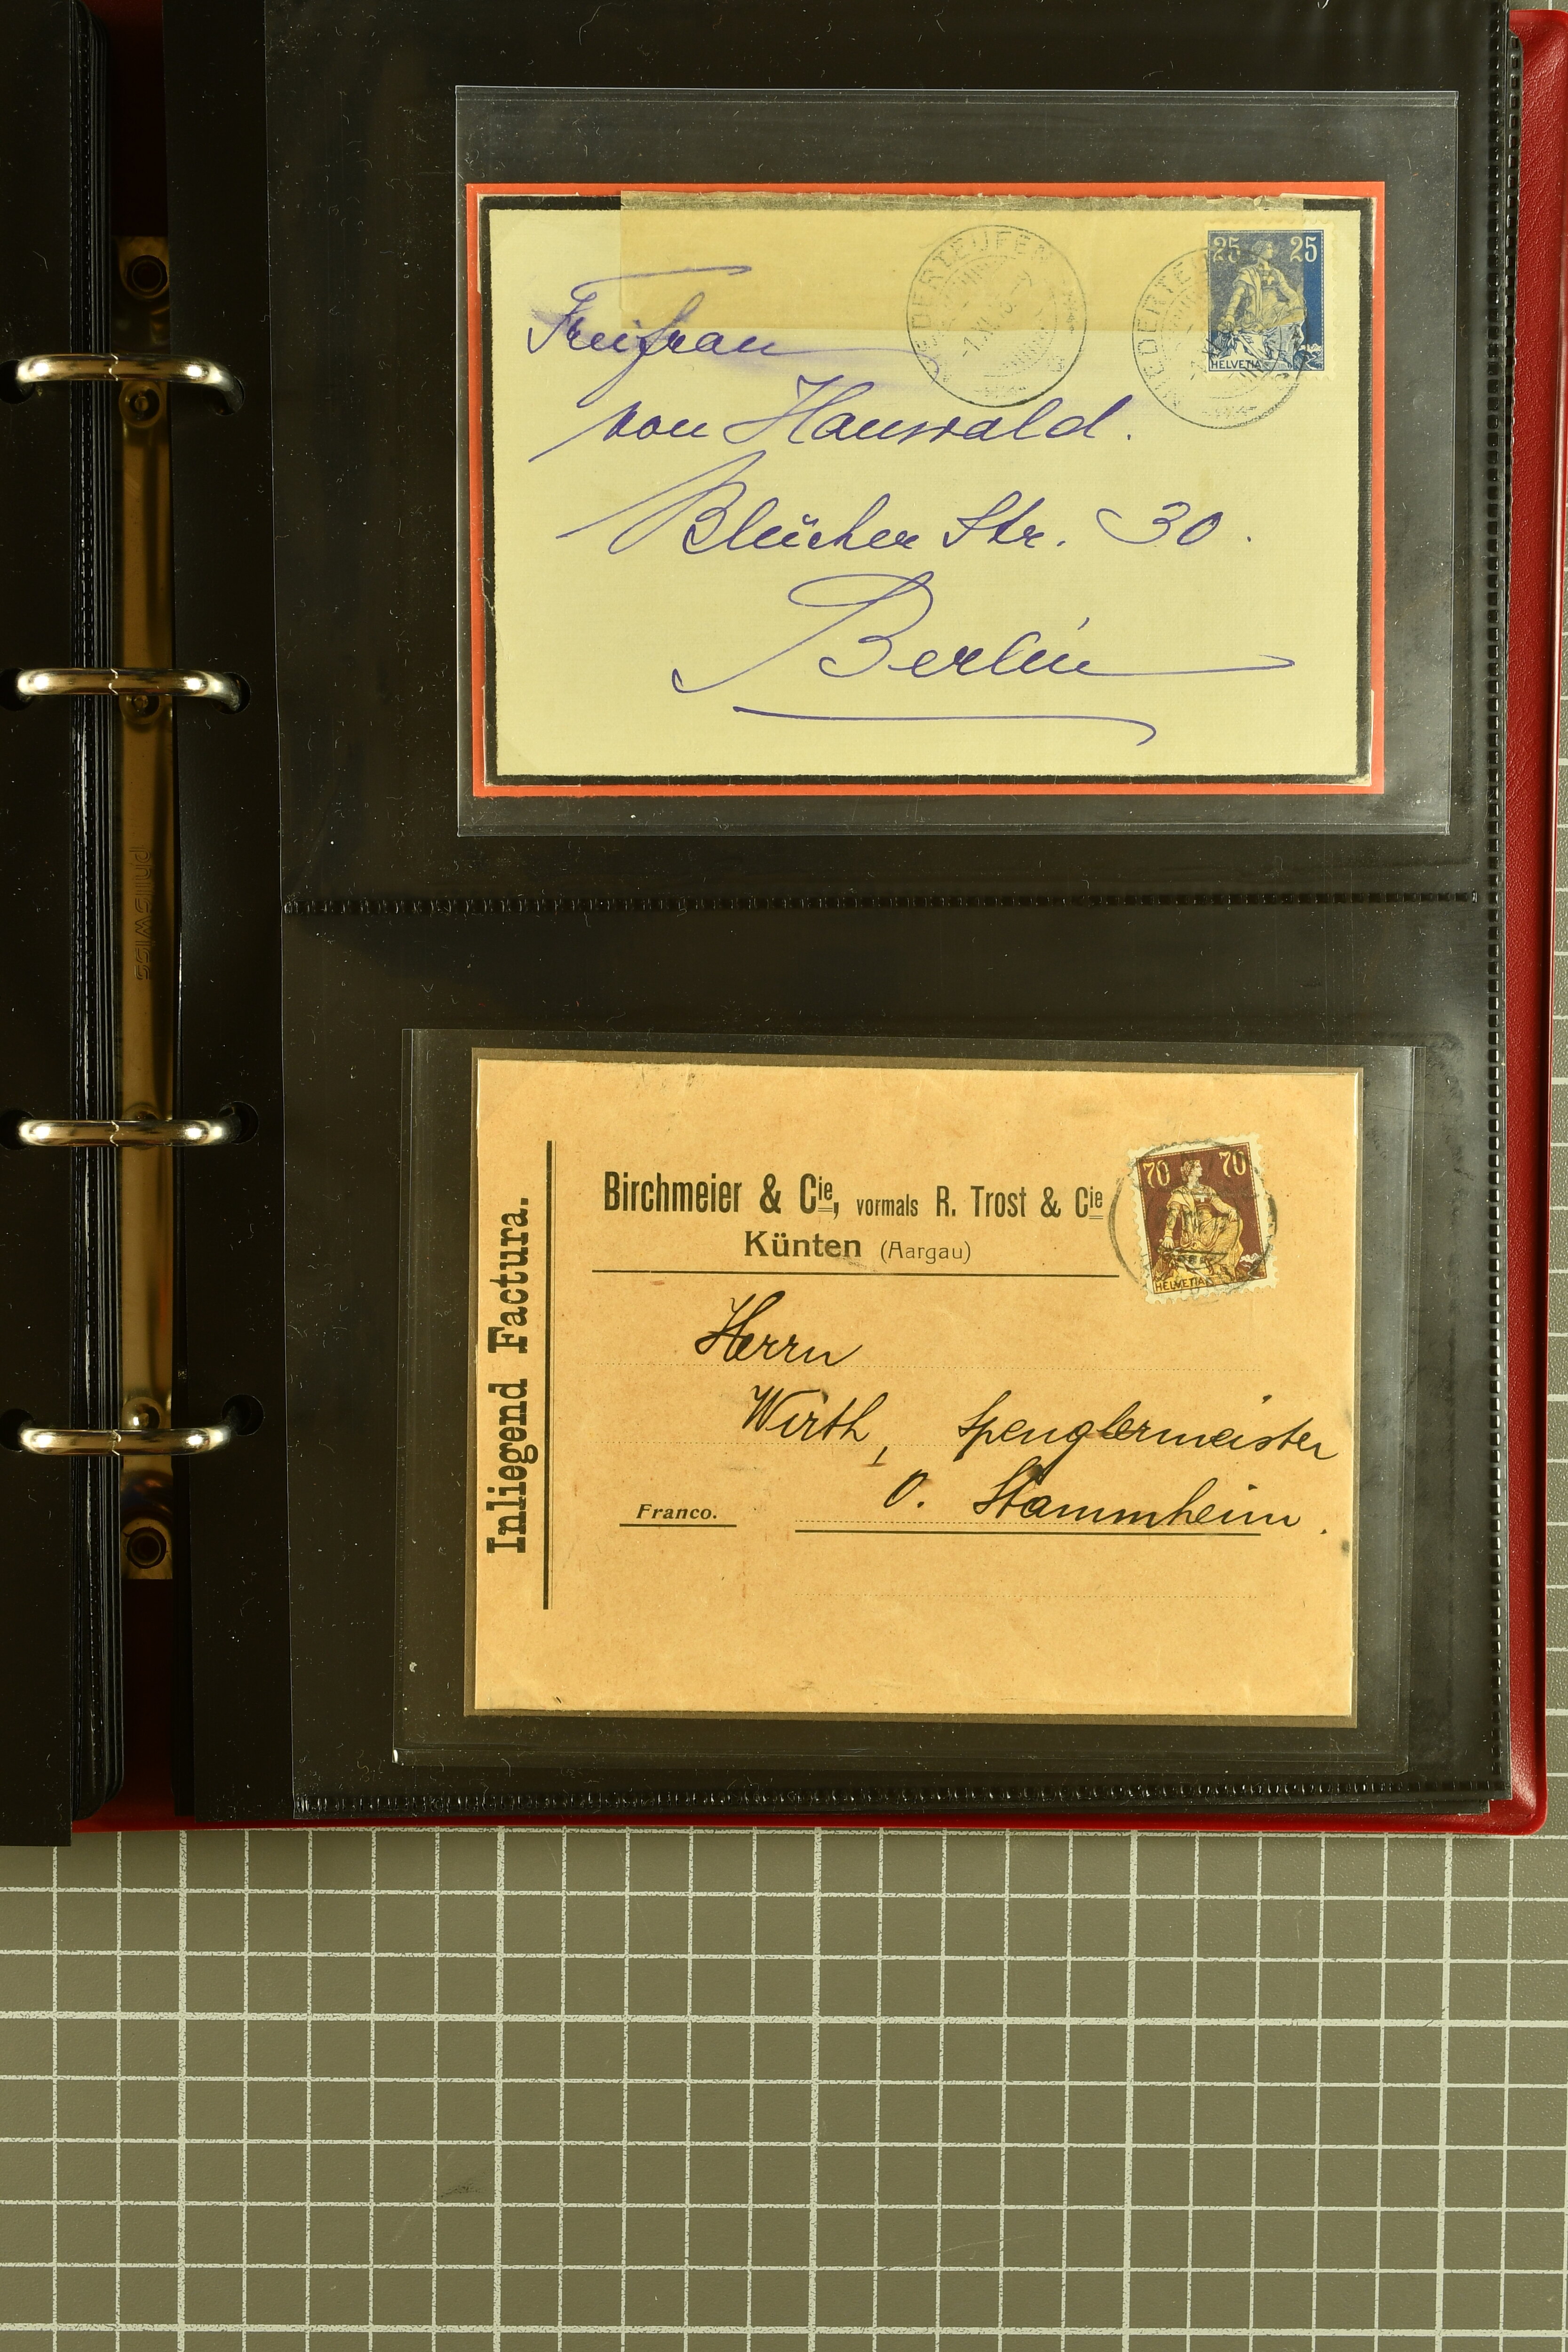 NIEDERTEUFEN
25 25
HELVETIA
Freifrau
von Hauswald.
Blücher Str. 30.
Berlin
philswiss
Inliegend Factura.
Birchmeier & Cie, vormals R. Trost & Cie
Künten (Aargau)
70 70
HELVETIA
Herrn
Wirth, Spenglermeister
O. Stammheim.
Franco.